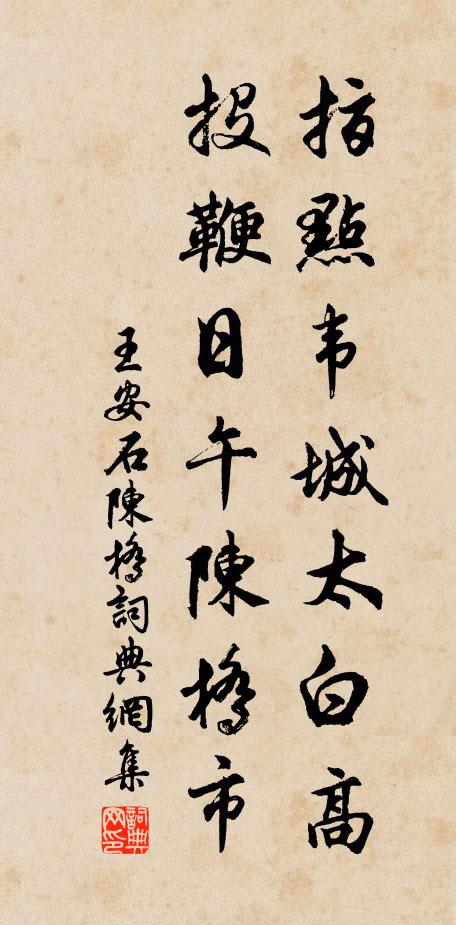 指點韦城太白高
投鞭日午陳橋市
王安石陳橋詞典網集
詞典
网印